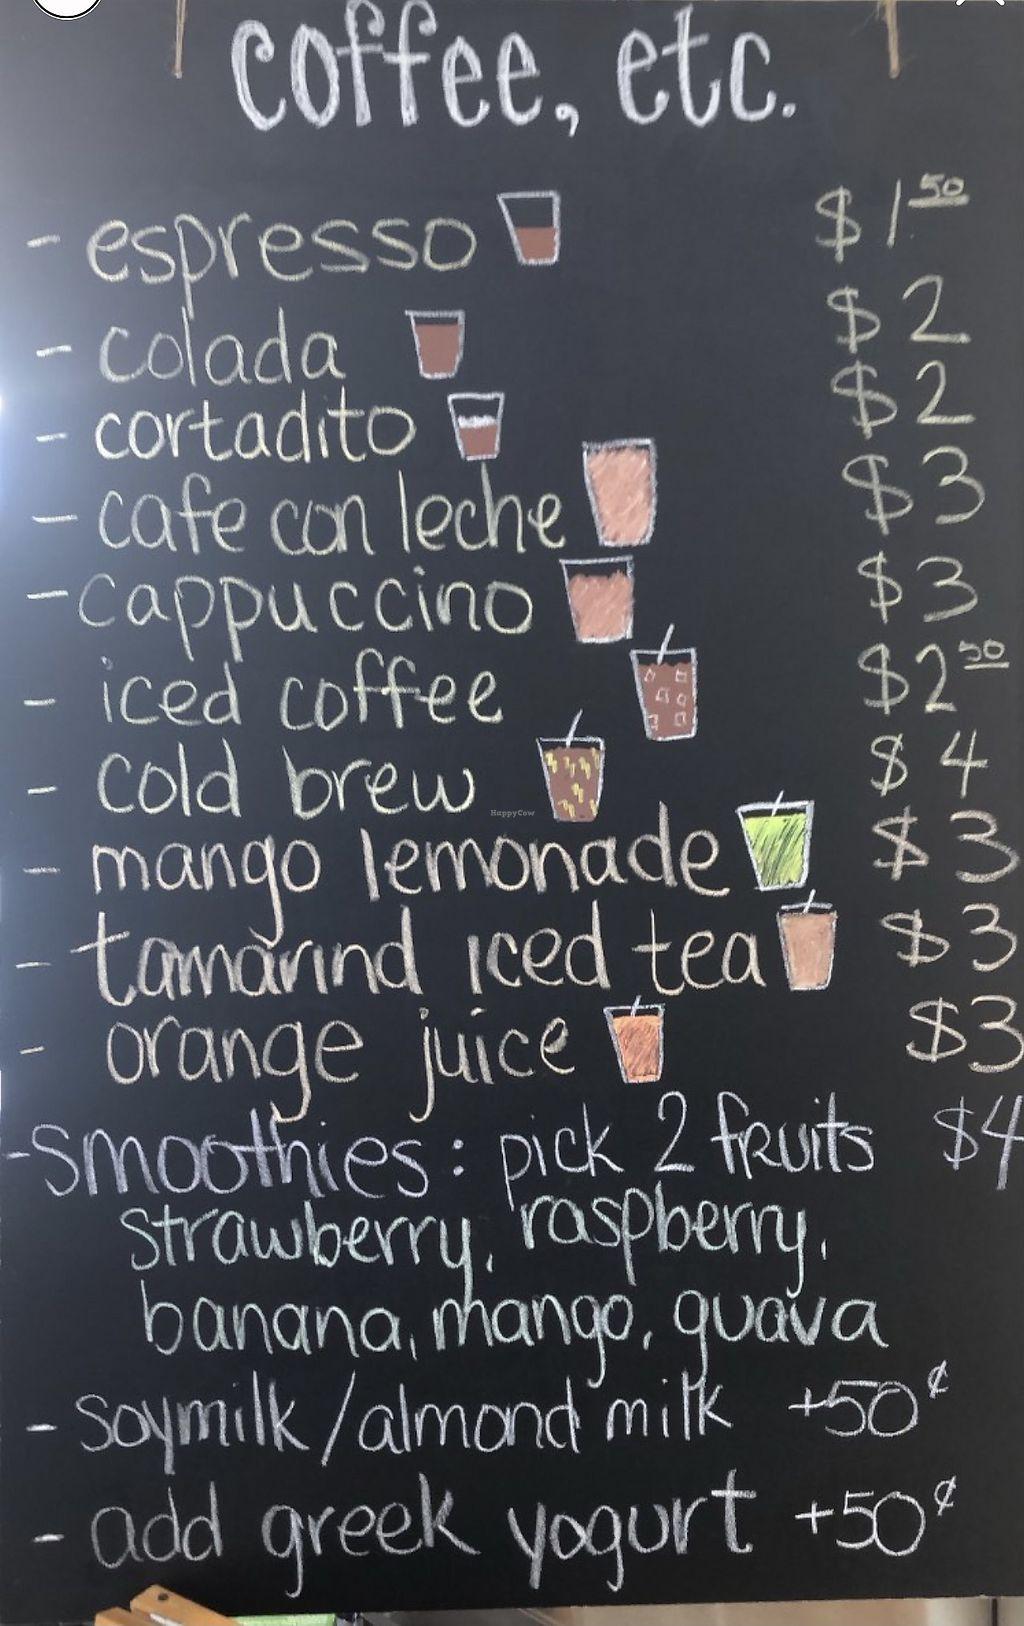 coffee, etc.
- espresso $1 50
- colada $2
- cortadito $2
- cafe con leche $3
- cappuccino $3
- iced coffee $2 50
- cold brew $4
HappyCow
- mango lemonade $3
- tamarind iced tea $3
- orange juice $3
- smoothies: pick 2 fruits $4
strawberry, raspberry,
banana, mango, guava
- soymilk/almond milk +50¢
- add greek yogurt +50¢